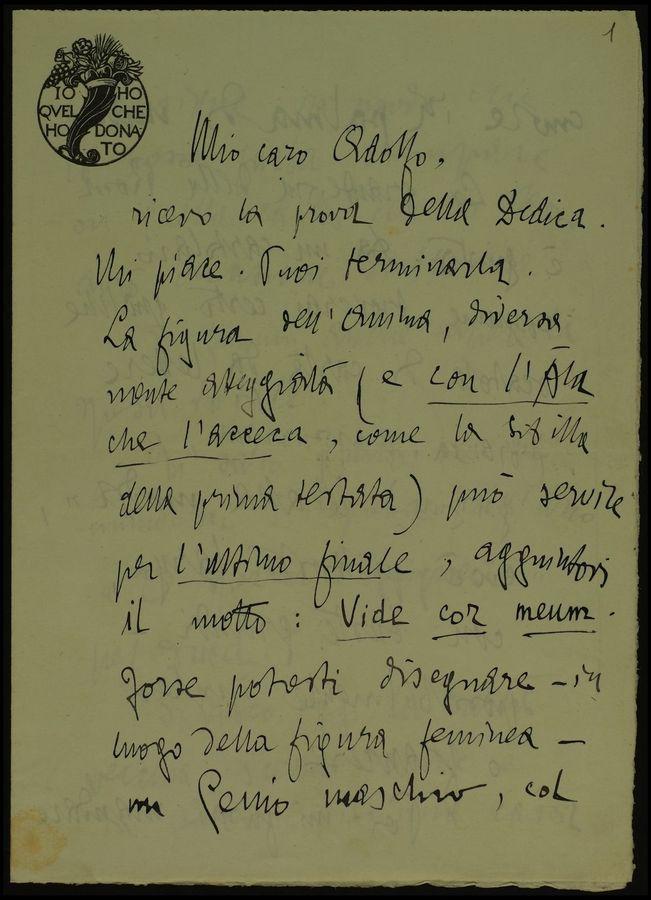 1
IO HO
QVEL CHE
HO DONA
TO
Mio caro Adolfo,
ricevo la prova della Dedica.
Mi piace. Puoi terminarla.
La figura dell'Anima, diversa
mente atteggiata (e con l'Ala
che l'acceca, come la sibilla
della prima testata) può servire
per l'ultimo finale, aggiuntovi
il motto: Vide cor meum.
Forse potresti disegnare – in
luogo della figura feminea –
un Genio maschio, col